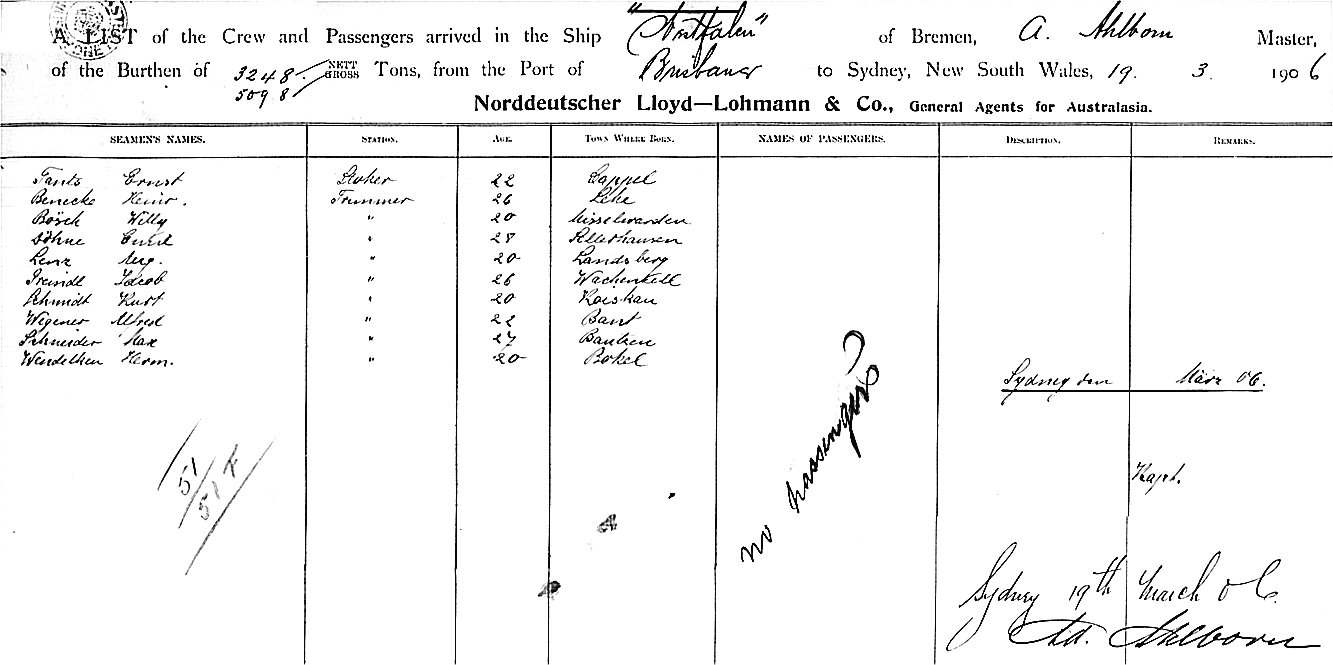 A LIST of the Crew and Passengers arrived in the Ship "Westfalen" of Bremen, A. Ahlborn Master,
of the Burthen of 3248 / 5098 NETT GROSS Tons, from the Port of Brisbane to Sydney, New South Wales, 19. 3. 1906
Norddeutscher Lloyd—Lohmann & Co., General Agents for Australasia.
SEAMEN'S NAMES. STATION. AGE. TOWN WHERE BORN. NAMES OF PASSENGERS. DESCRIPTION. REMARKS.
Tants Ernst Stoker 22 Cappel
Benecke Heinr. Trimmer 26 Lehe
Bösch Willy " 20 Misselwarden
Döhne " 28
Lenz Aug. " 20 Landsberg
Jacob " 26
Schmidt Kurt " 20 Roiskau
Wegener Alfred " 22 Bant
Schneider Max " 27 Bautzen
Wendelken Herm. " 20 Bokel
Sydney den März 06.
no passengers
51
51
Kapt.
Sydney 19th March 06.
Ad. Ahlborn